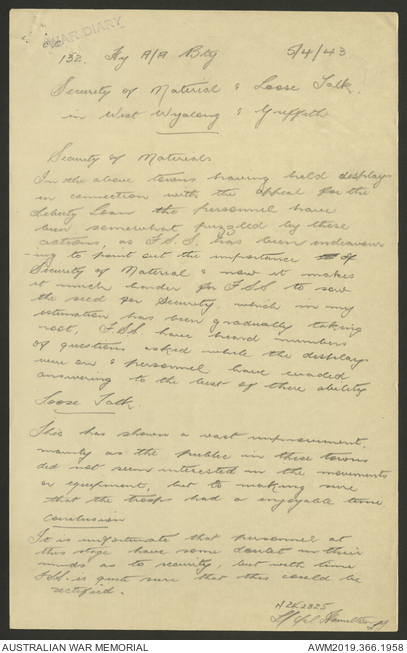 WAR DIARY
132. Hy A/A Btg 5/4/43.
Security of Material & Loose Talk.
in West Wyalong & Griffith
Security of Materials
In the above towns having held displays
in connection with the appeal for the
Liberty Loan the personnel have
been somewhat puzzled by these
actions, as F.S.S. has been endeavour
-ing to point out the importance of
Security of Material & now it makes
it much harder for F.S.S. to sow
the seed for Security, which in my
estimation has been gradually taking
root, F.S.S. have heard numbers
of questions asked while the displays
were on & personnel have evaded
answering to the best of there ability
Loose Talk.
This has shown a vast improvement.
mainly as the public in these towns
did not seem interested in the movements
or equipment, but to making sure
that the troops had a enjoyable time
Conclusion
It is unfortunate that personnel at
this stage have some doubt in their
minds as to security, but with time
F.S.S. is quite sure that this could be
rectified.
L/Cpl Hamilton
AUSTRALIAN WAR MEMORIAL AWM2019.366.1958